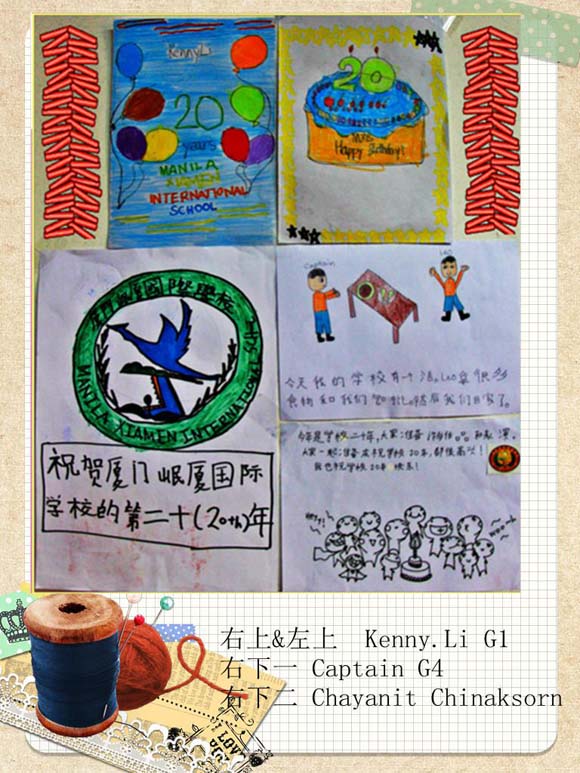 Kenny Li
20
years
MANILA
XIAMEN
INTERNATIONAL
SCHOOL
20
MXIS
Happy Birthday!
MANILA XIAMEN INTERNATIONAL
祝贺厦门岷厦国际
学校的第二十(20th)年
Captain
今天我的学校有一个活
食物和我们
后我们回家了。
今年是学校二十年,大家准备
大家一起准备庆祝学校20年,都很高兴!
我也祝学校20年快乐!
右上&左上 Kenny.Li G1
右下一 Captain G4
右下二 Chayanit Chinaksorn
LOVE